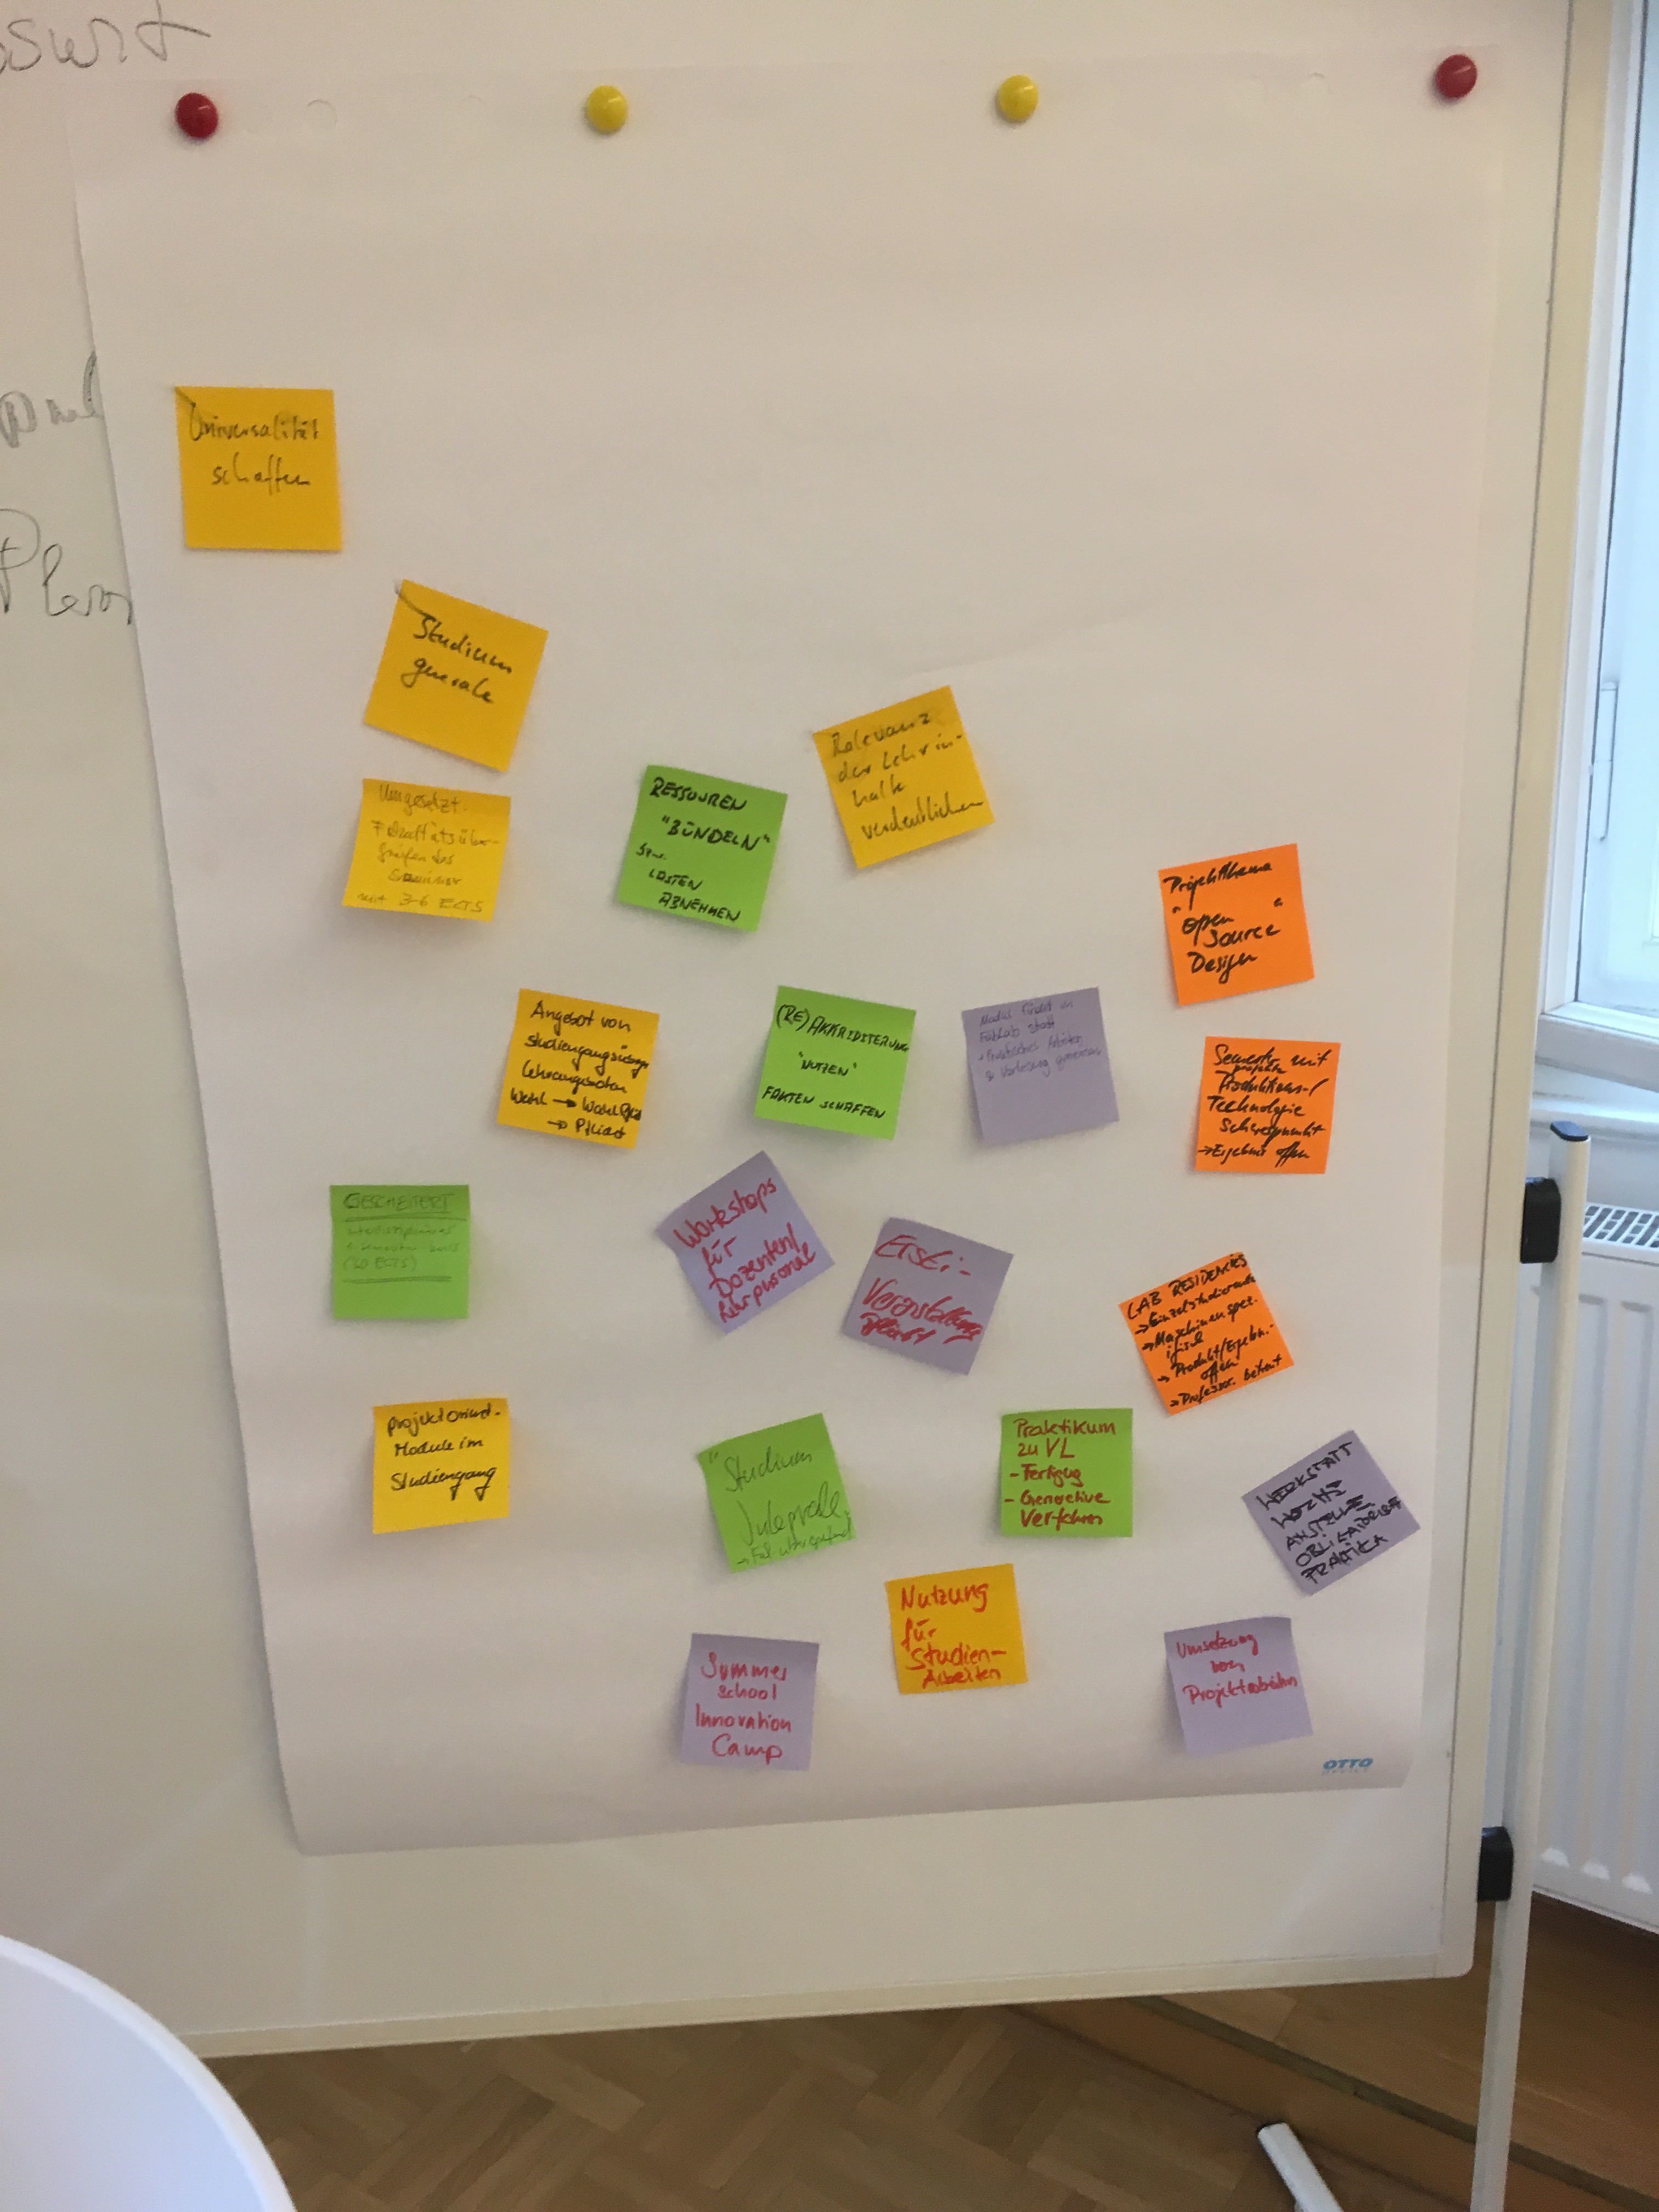 Universalität
schaffen
Studium
generale
Relevanz
der Lehrin-
halte
verdeutlichen
Umgesetzt:
Fakultätsüber-
greifendes
Seminar
mit 3-6 ECTS
RESSOUREN
"BÜNDELN"
LASTEN
ABNEHMEN
Projektthema
"open
source"
Design
Angebot von
Lehrangeboten
Wahl → Wahlpfl
→ Pflicht
(RE)AKKRIDITERUNG
"NUTZEN"
FAKTEN SCHAFFEN
Modul findet im
FabLab statt
& Vorlesung gemeinsam
Semester mit
projekte
Produktions-/
Technologie
Schwerpunkt
→ Ergebnis offen
GESCHEITERT
(30 ECTS)
Workshops
für
Dozenten/
Lehrpersonal
Ersti-
Veranstaltung
Pflicht
LAB RESIDENCIES
→ Einzelstudierende
→ Maschinenspez-
ifisch
→ Produkt/Ergebn.-
offen
→ Professor. betreut
projektorient.
Module im
Studiengang
"Studium
Integrale"
Praktikum
zu VL
- Fertigug
- Generative
Verfahren
WERKSTATT
ANSTELLE
OBLIGATORISCHE
PRAKTIKA
Nutzung
für
Studien-
Arbeiten
Summer
school
Innovation
Camp
Umsetzung
von
Projektarbeiten
OTTO
OFFICE